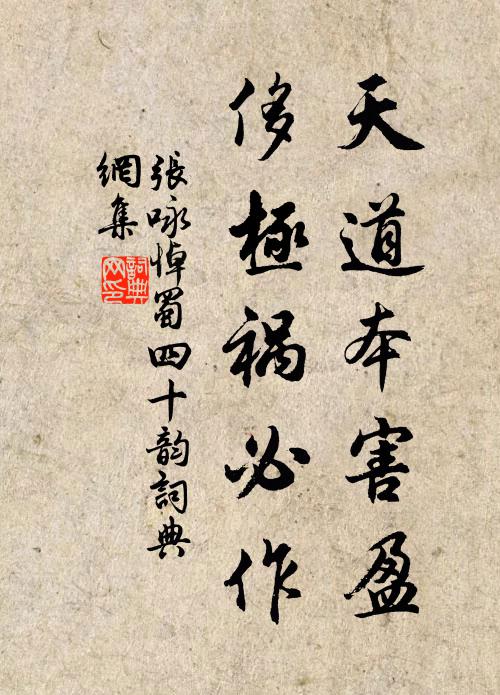 天道本害盈
侈極禍必作
張咏悼蜀四十韵詞典
網集
詞典
网印